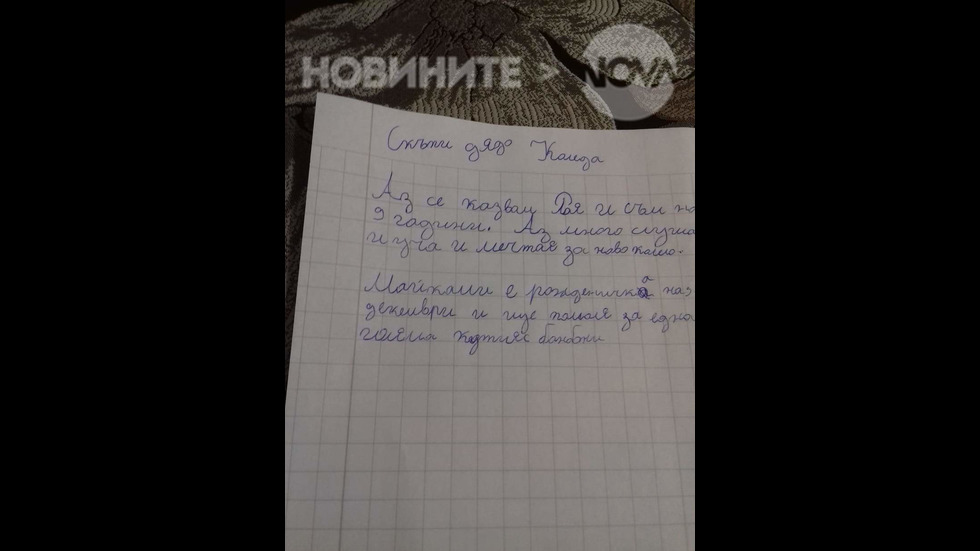 НОВИНИТЕ > NOVA
Скъпи дядо Коледа
Аз се казвам Рая и съм на
9 години. Аз много слуша
и уча и мечтая за ново коло.
Майками е рожденичка на 9
декември и ще помоля за една
голяма кутия с бонбони